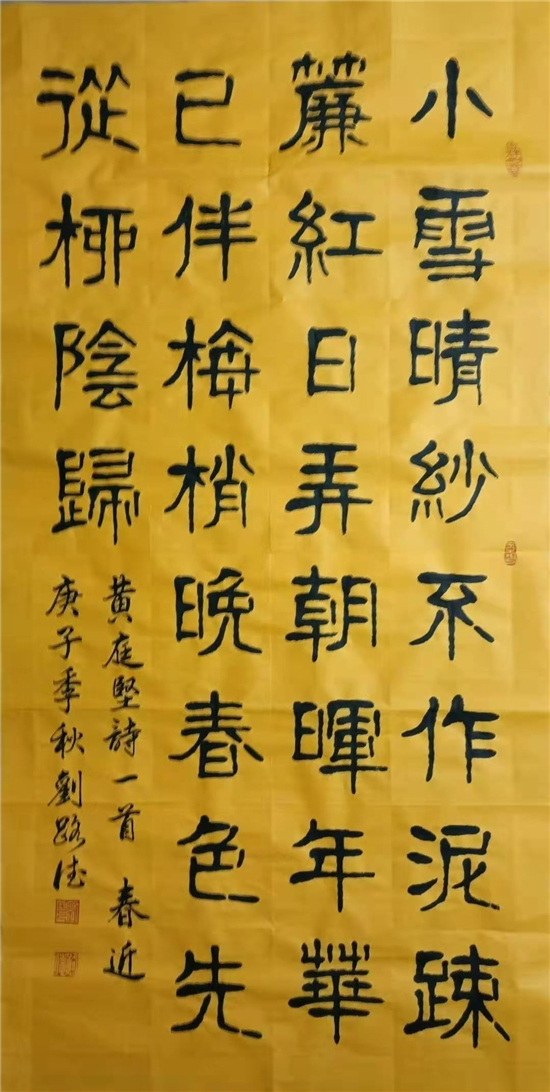 小雪晴紗不作泥踈
簾紅日弄朝暉年華
已伴梅梢晚春色先
從柳陰歸
黄庭堅詩一首 春近
庚子季秋劉路德